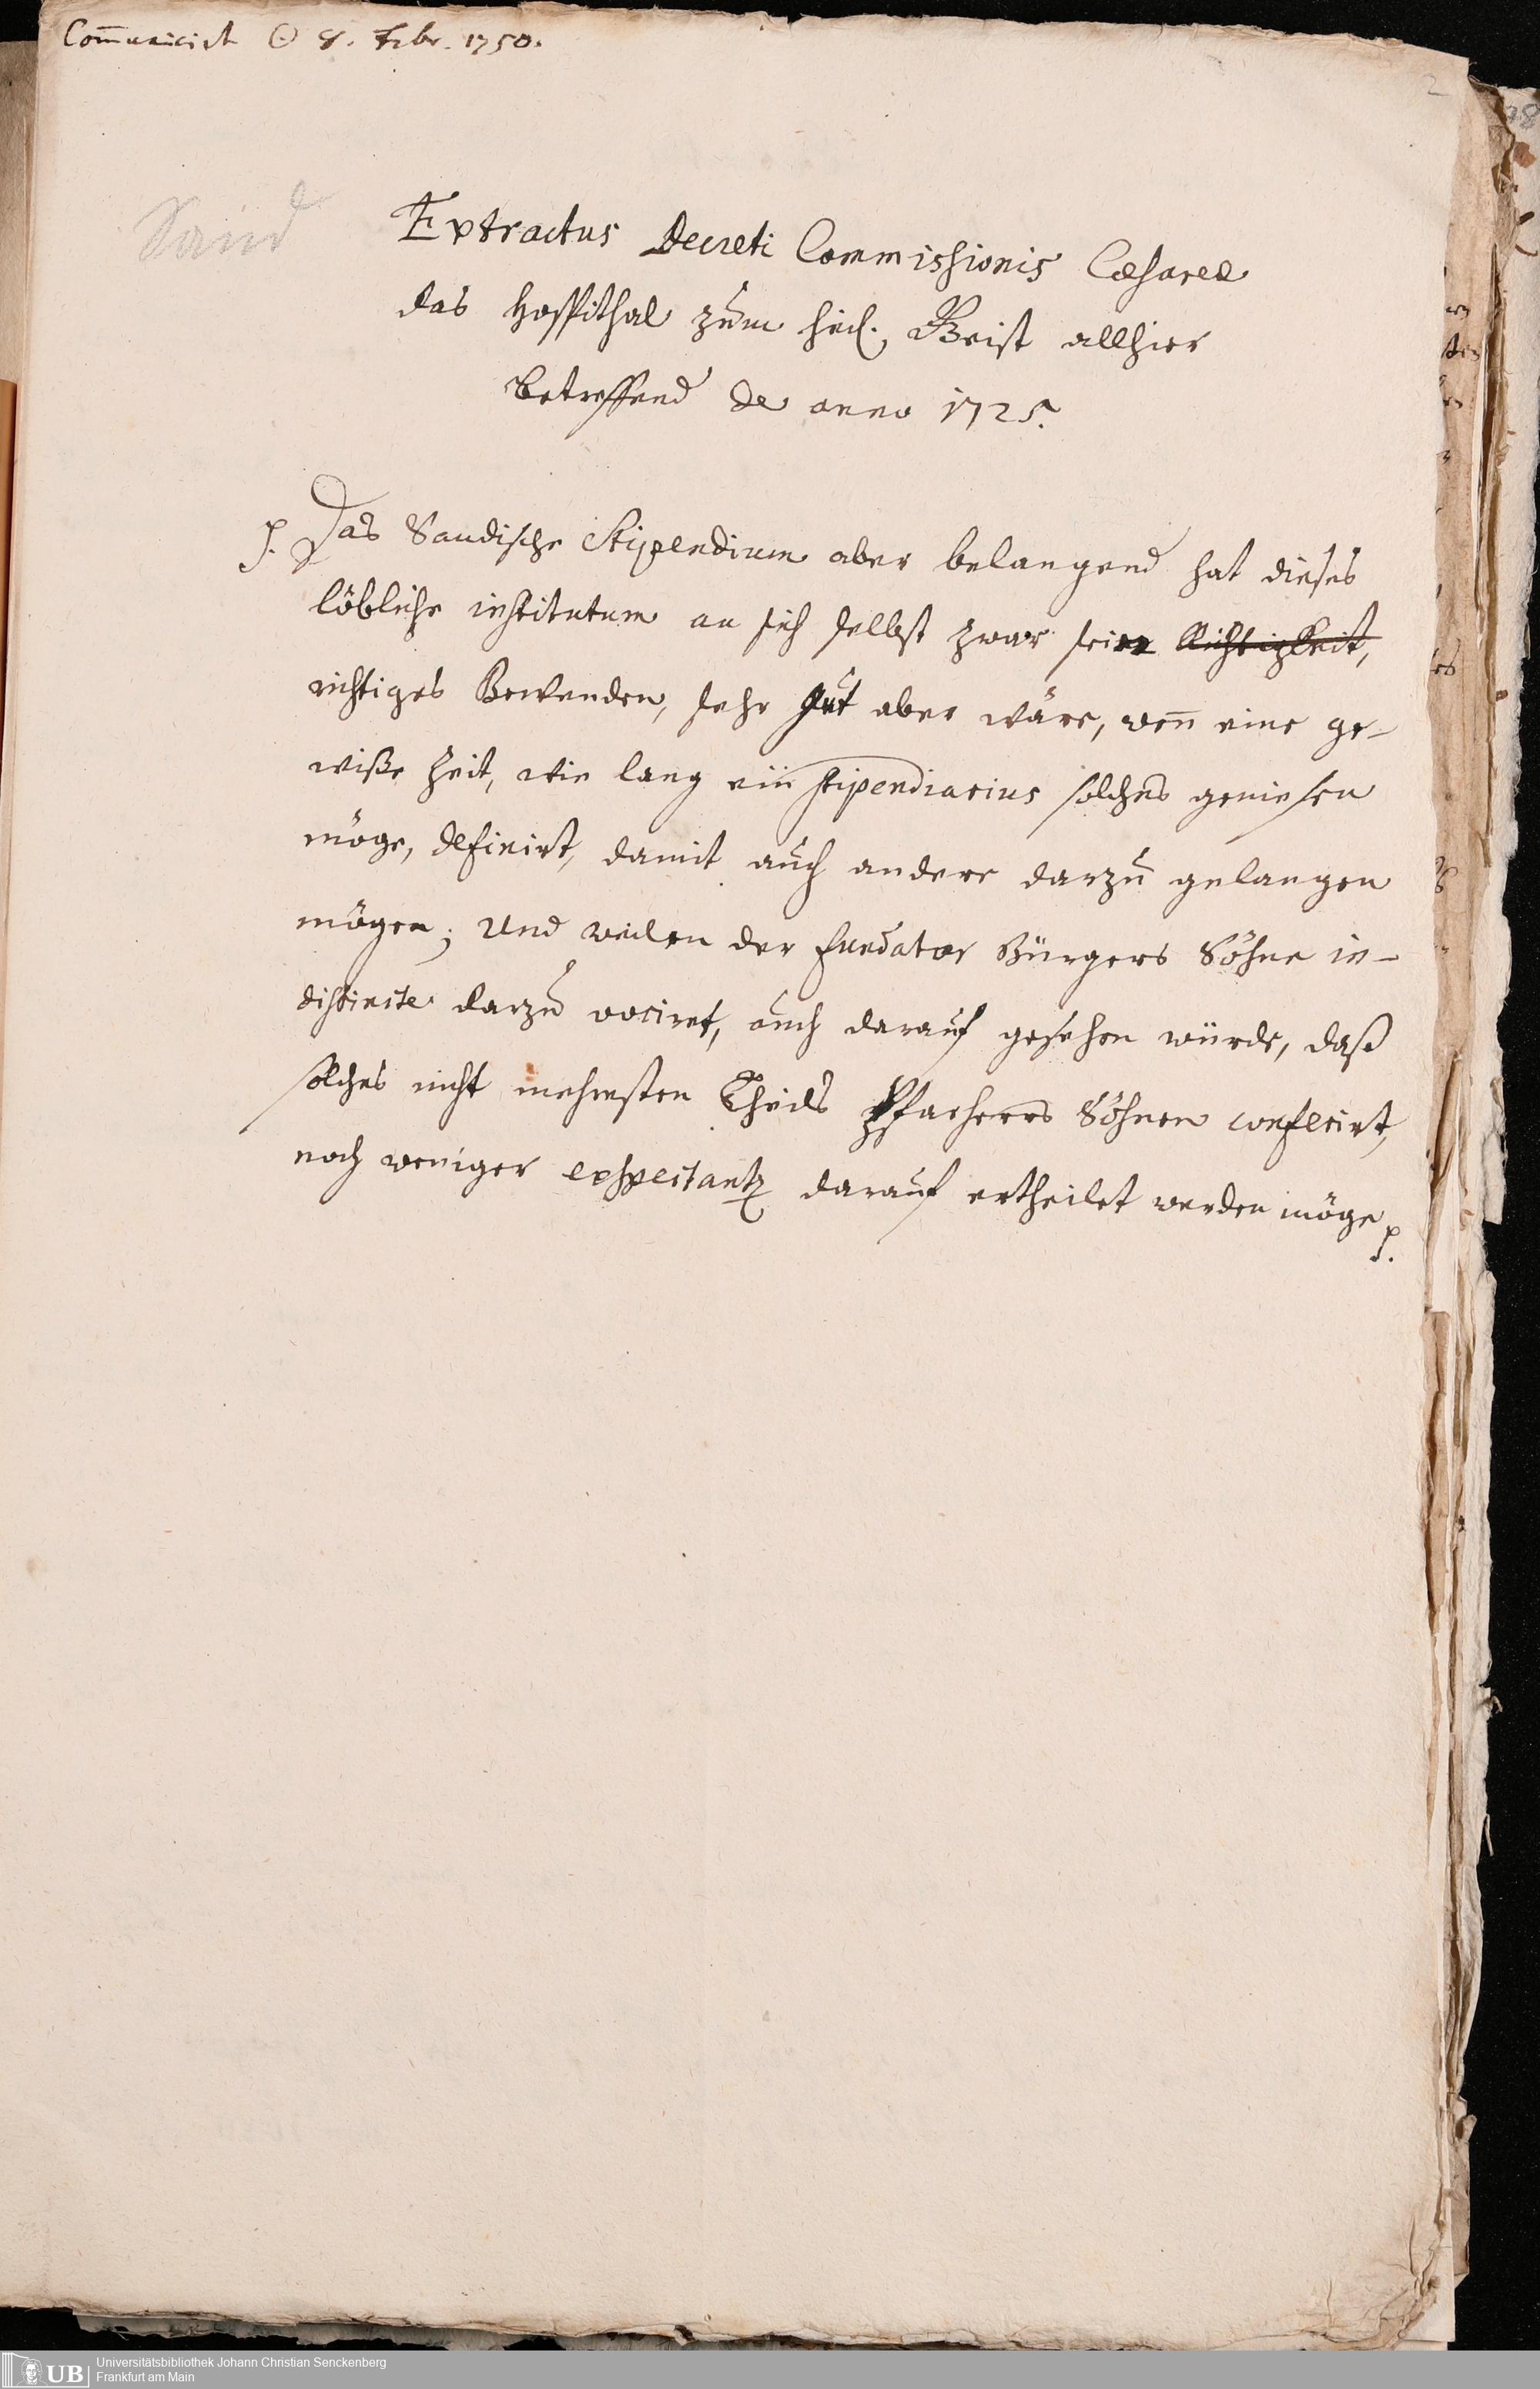 Com̄unicirt ☉ 8. Febr. 1750.
2
Sand
Extractus Decreti Commissionis Cæsareæ
das Hospithal zum heil. Geist allhier
betreffend de anno 1725.
p. Das Sandische Stipendium aber belangend hat dieses
löbliche institutum an sich selbst zwar sein Richtigkeit,
richtiges Bewenden, sehr gut aber wäre, wen̄ eine ge-
wiße Zeit, wie lang ein stipendiarius solches geniesen
möge, definirt, damit auch andere darzu gelangen
mögen; Und weilen der fundator Bürgers Söhne in-
distincte darzu vociret, auch darauf gesehen würde, daß
solches nicht mehresten Theils Pfarherrs Söhnen conferirt,
noch weniger exspectantz darauf ertheilet werden möge p.
UB
Universitätsbibliothek Johann Christian Senckenberg
Frankfurt am Main